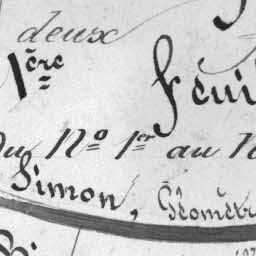 deux
1ère Feui
Du Nº 1er au N
Simon, Géomètr